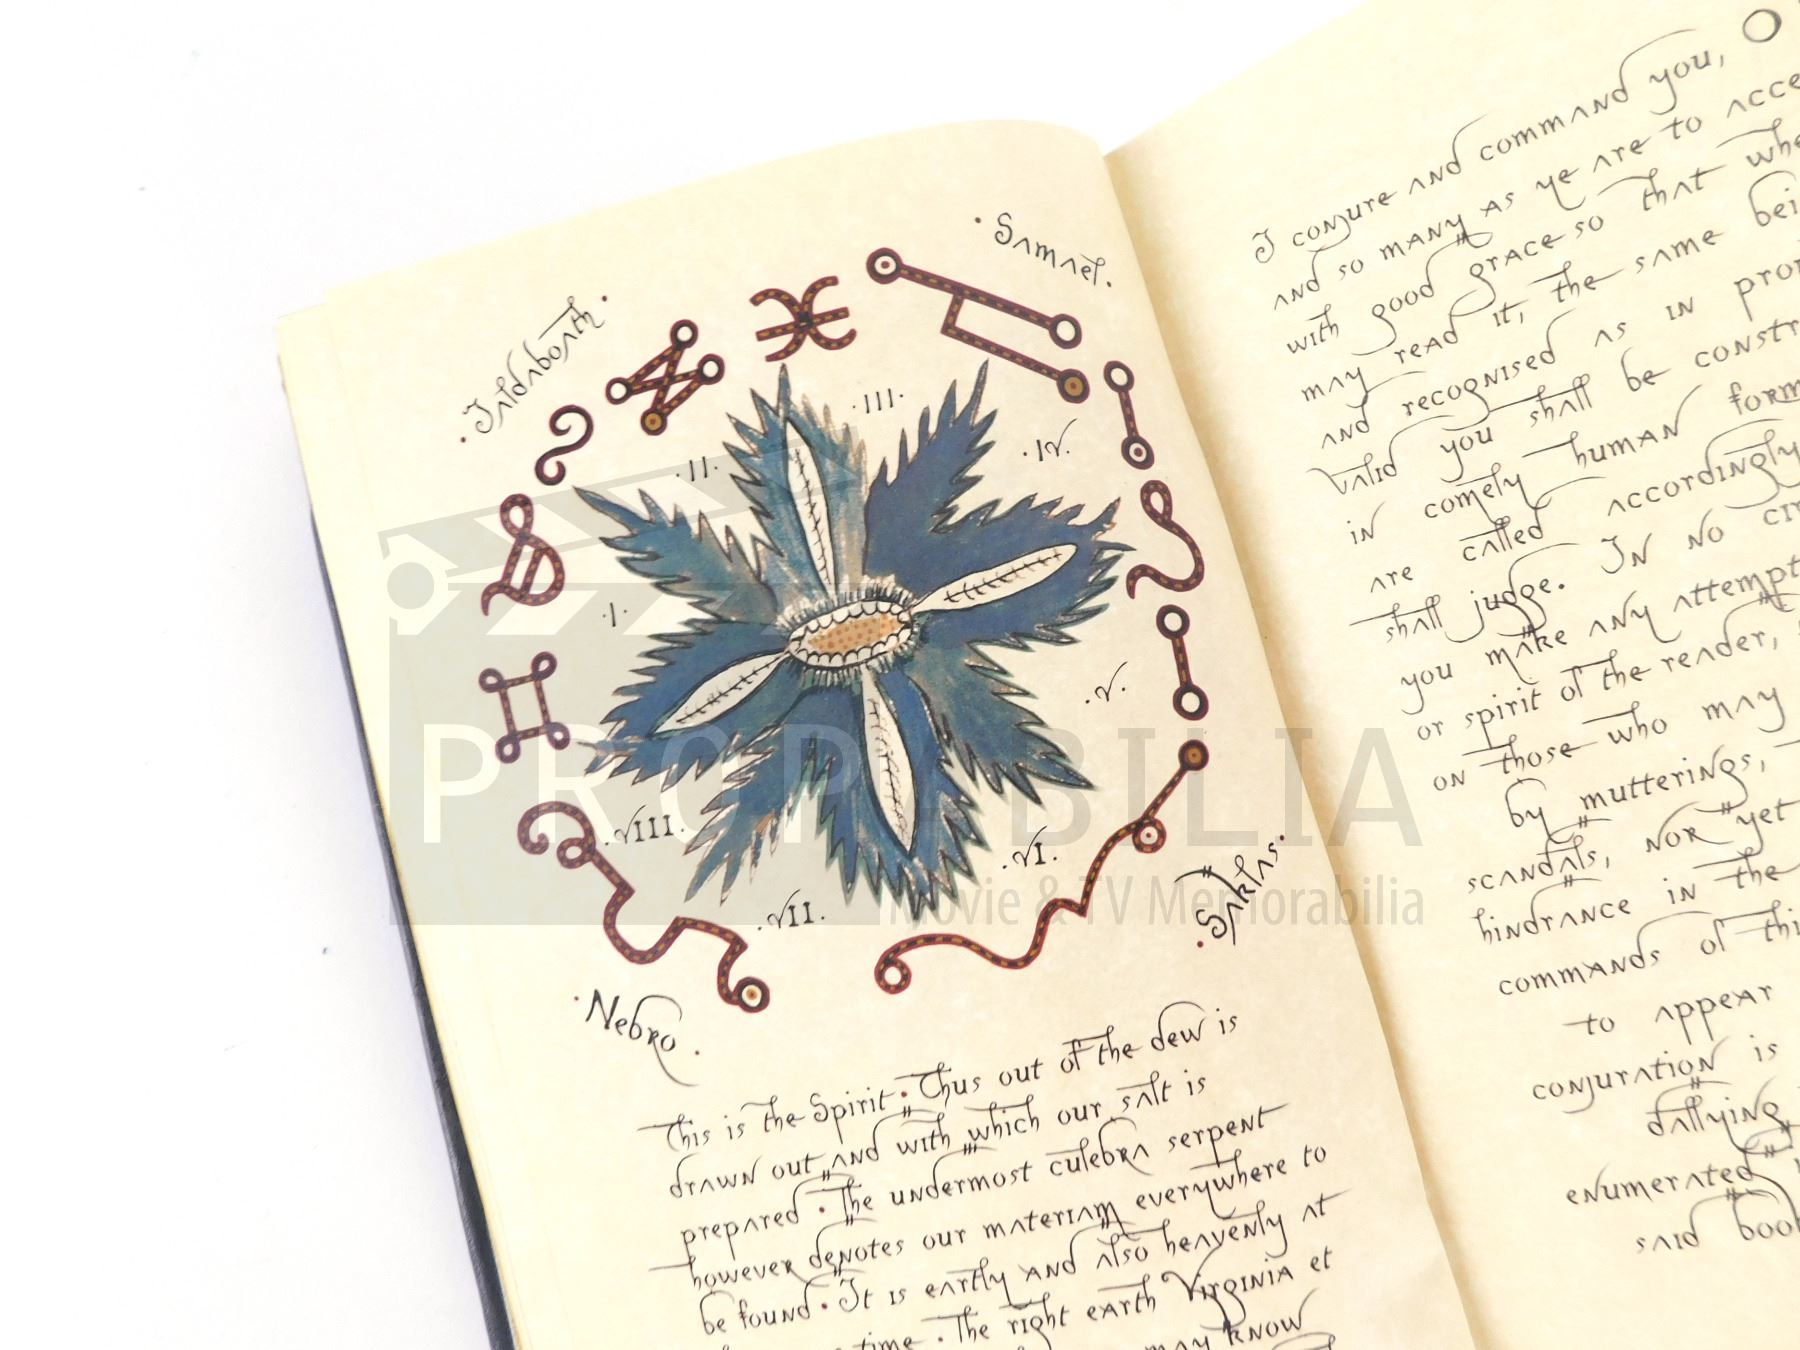 ·Samael·
·Ialdaboath·
·III·
·II·
·IV·
·I·
·V·
·VIII·
·VI·
·VII·
·Saklas·
·Nebro·
This is the Spirit· Thus out of the dew is
drawn out and with which our salt is
prepared· The undermost culebra serpent
however denotes our materiam everywhere to
be found· It is eartly and also heavenly at
time· The right earth Virginia et
may know
I conjure and command you, O
and so many as ye are to acce
with good grace so that whe
may read it, the same bei
and recognised as in pro
Valid you shall be constr
in comely human form
are called accordingly
shall judge. In no cir
you make any attempt
or spirit of the reader,
on those who may
by mutterings,
scandals, nor yet
hindrance in the
commands of thi
to appear
conjuration is
dallying
enumerated
said boo
PROPABILIA
Movie & TV Memorabilia